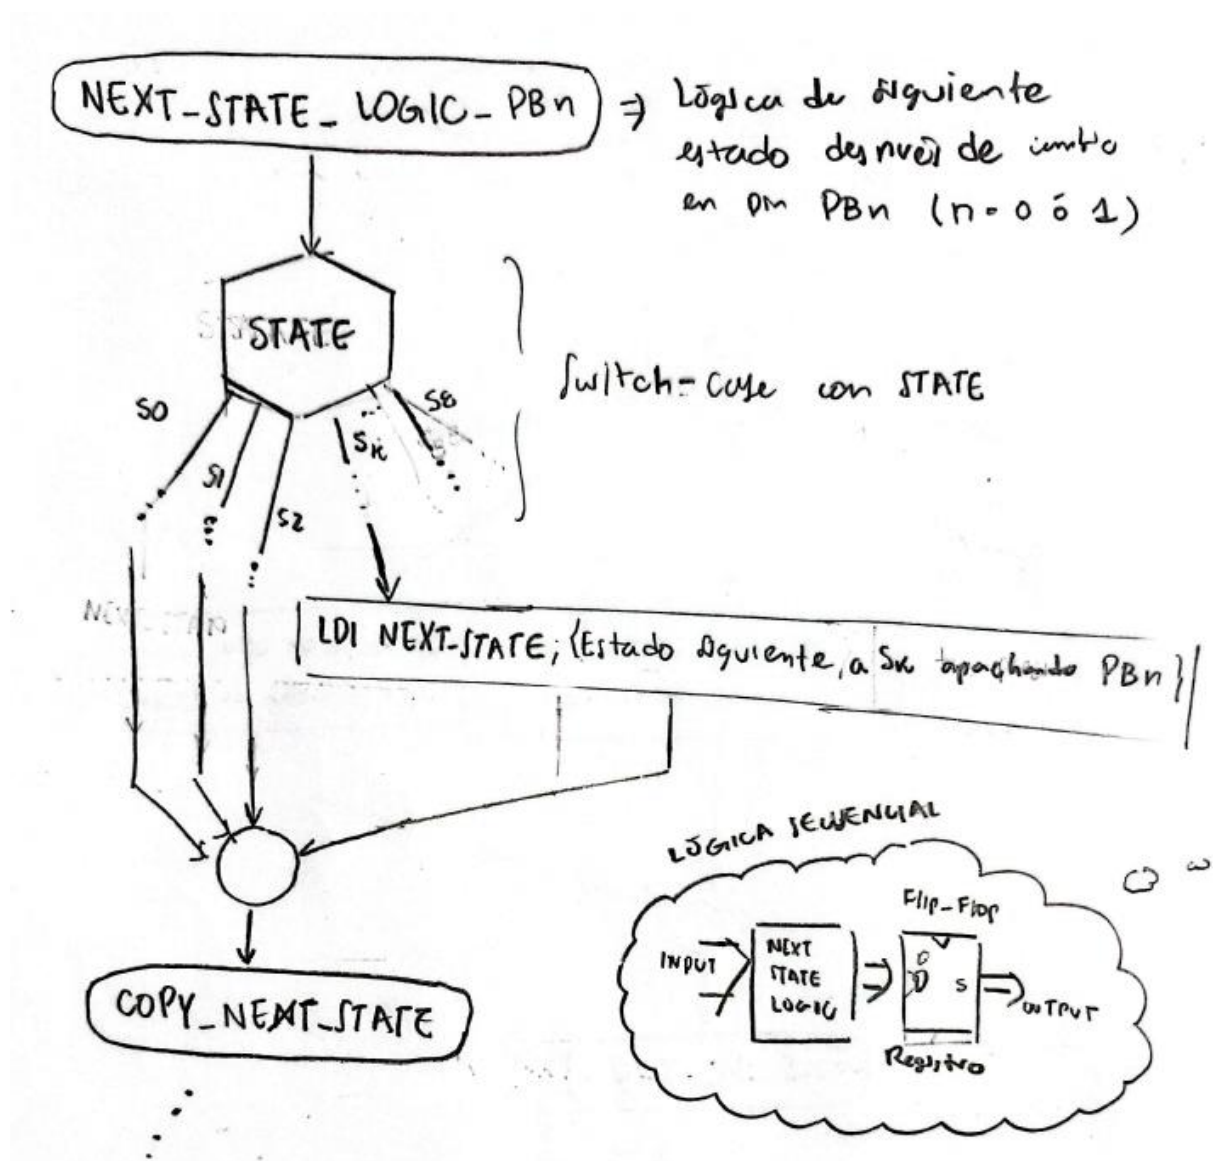 NEXT-STATE_LOGIC-PBn ⇒ Lógica de siguiente
estado después de cambio
en pin PBn (n=0 ó 1)
STATE
Switch-case con STATE
S0
S1
S2
Sk
S8
LDI NEXT-STATE, {Estado siguiente a Sk apachando PBn}
COPY_NEXT_STATE
LÓGICA SECUENCIAL
INPUT
NEXT
STATE
LOGIC
Flip-Flop
D
S
Registro
OUTPUT